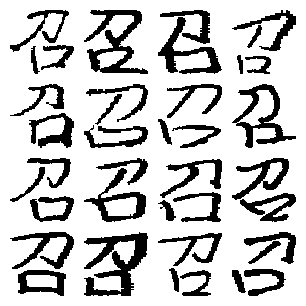 召召召召
召召召召
召召召召
召召召召